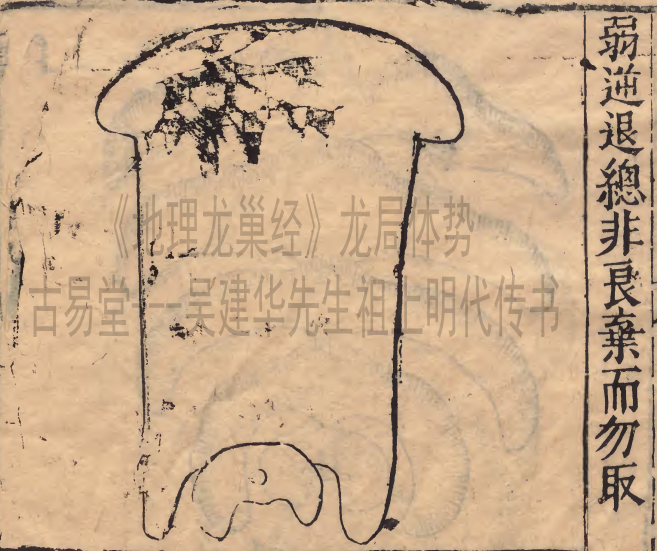 弱逆退總非良棄而勿取
《地理龙巢经》龙局体势
古易堂---吴建华先生祖上明代传书